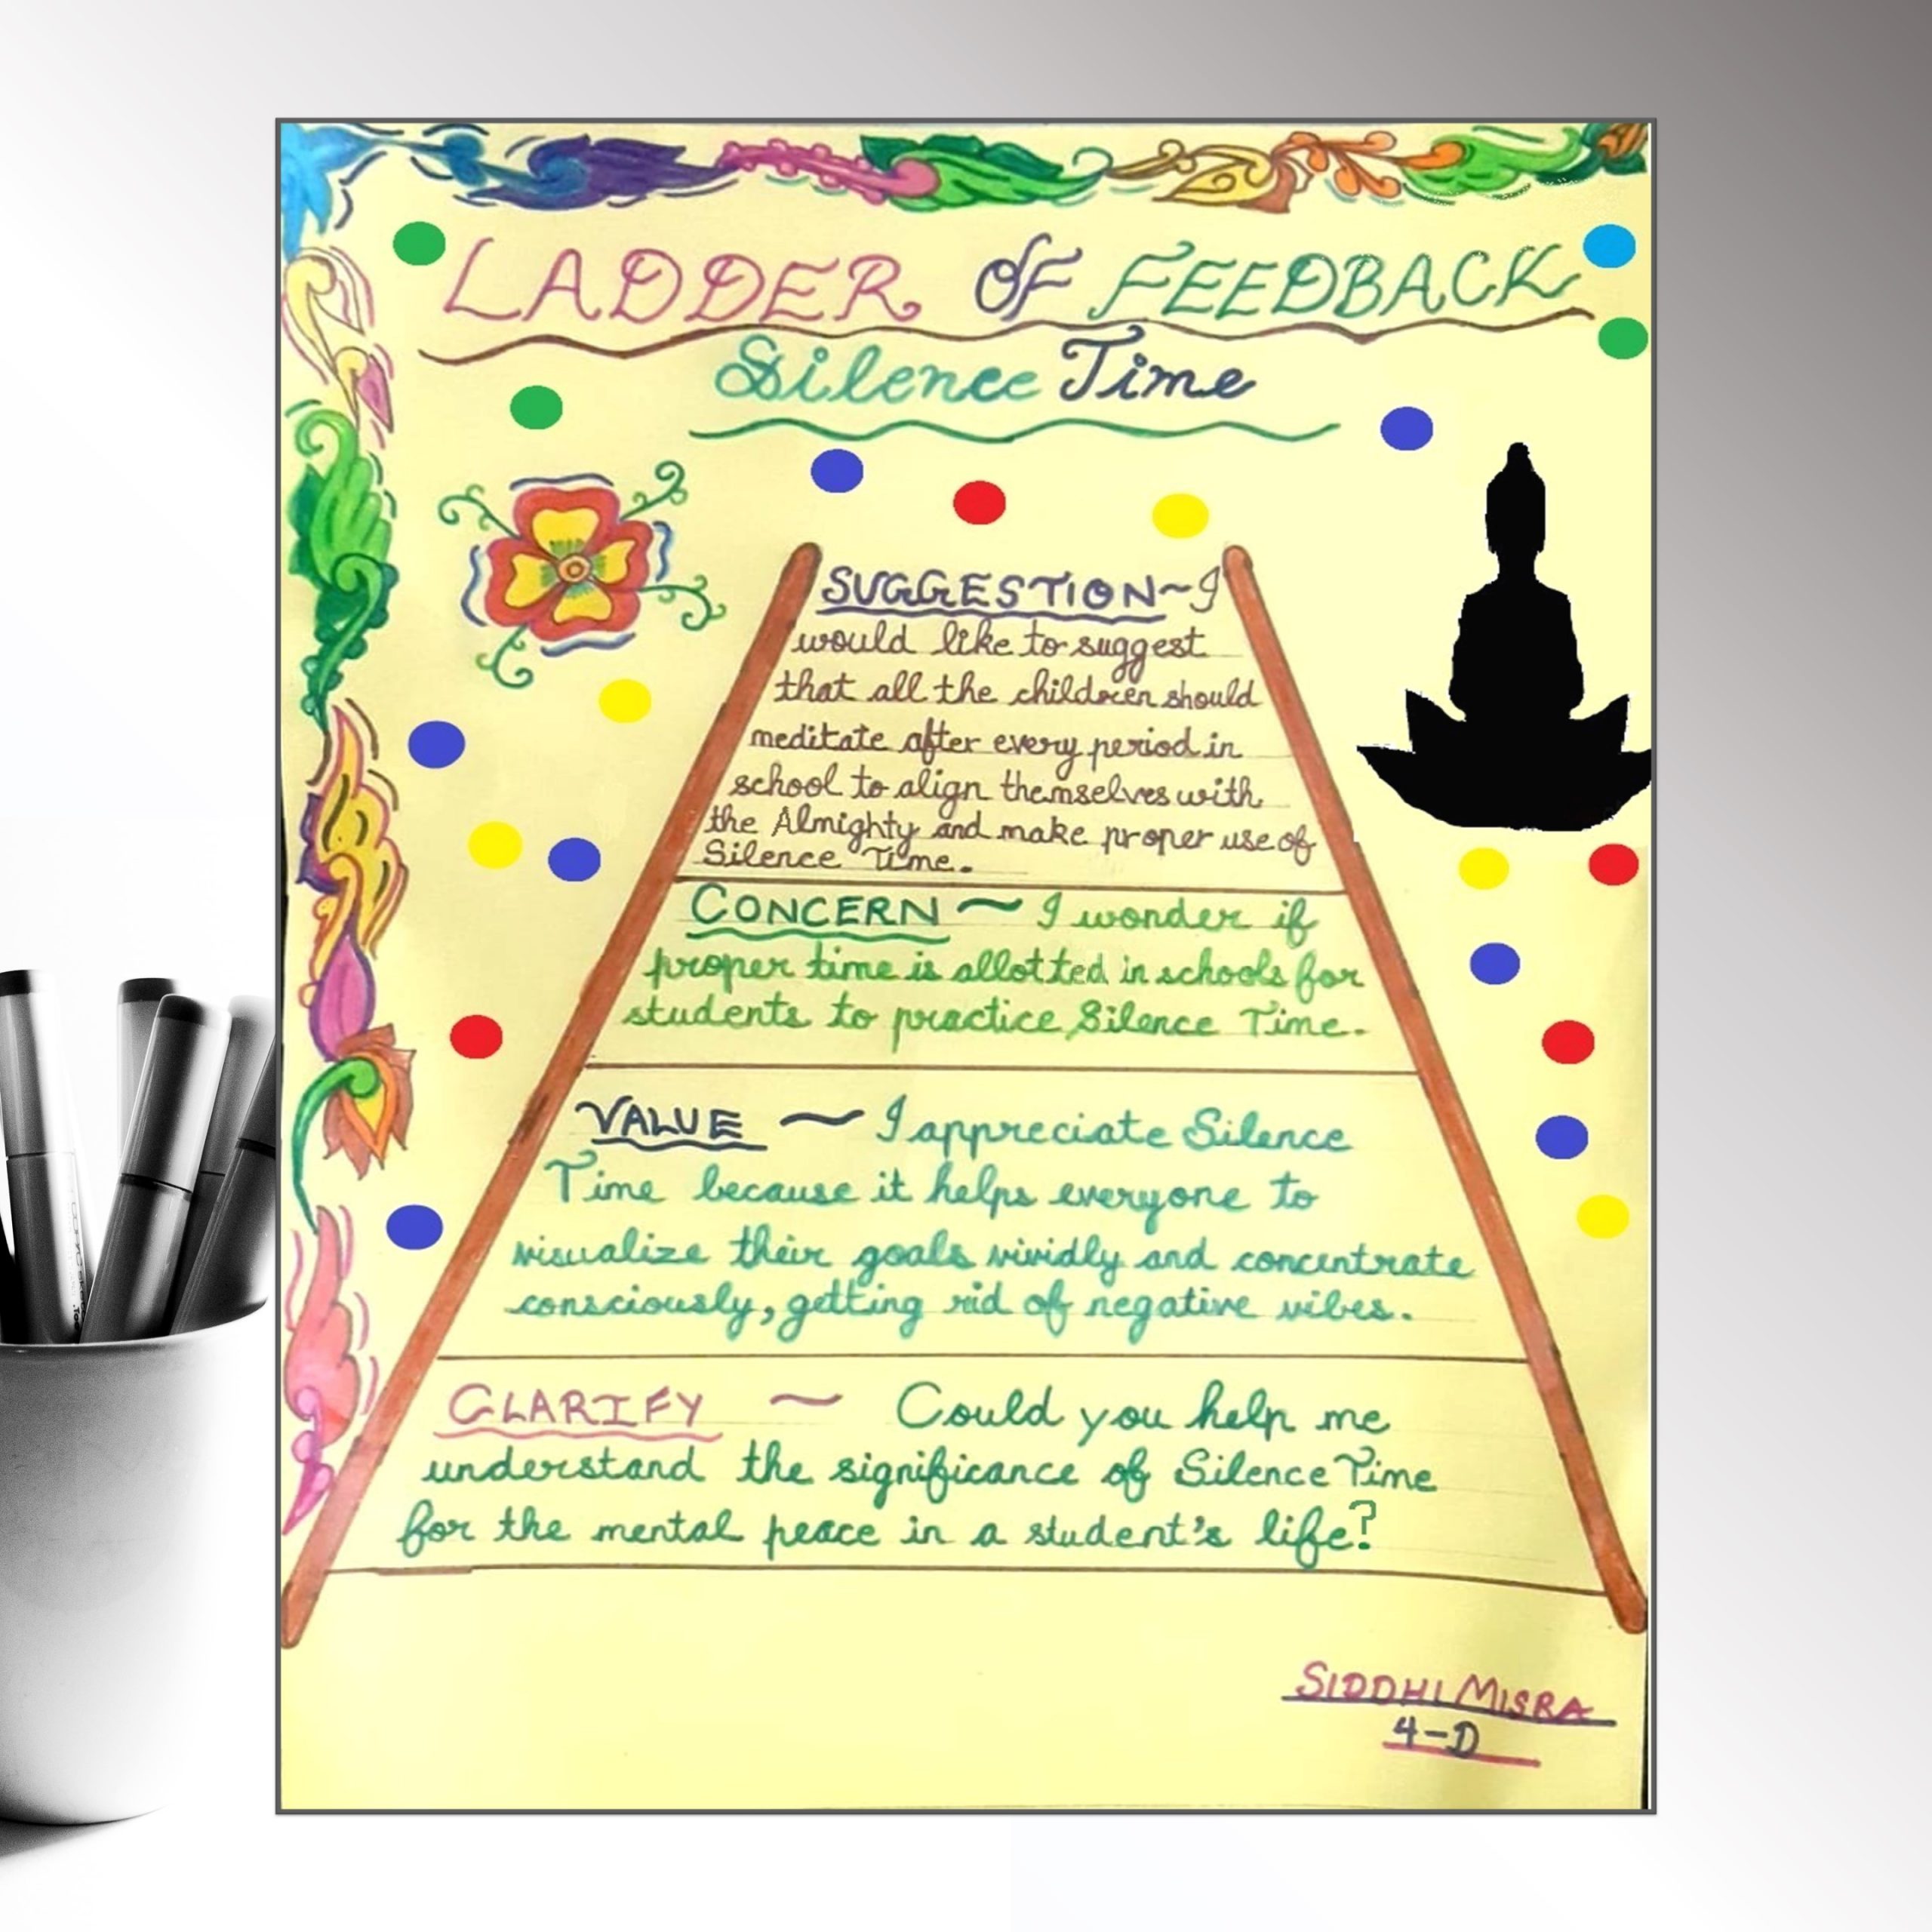 LADDER OF FEEDBACK
Silence Time
SUGGESTION~I
would like to suggest
that all the children should
meditate after every period in
school to align themselves with
the Almighty and make proper use of
Silence Time.
CONCERN ~ I wonder if
proper time is allotted in schools for
students to practice Silence Time.
VALUE ~ I appreciate Silence
Time because it helps everyone to
visualize their goals vividly and concentrate
consciously, getting rid of negative vibes.
CLARIFY ~ Could you help me
understand the significance of Silence Time
for the mental peace in a student's life?
SIDDHI MISRA
4-D